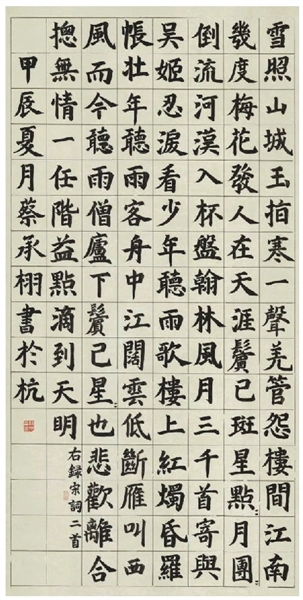 雪照山城玉指寒一聲羌管怨樓間江南
幾度梅花發人在天涯鬢已斑星點〻月團〻
倒流河漢入杯盤翰林風月三千首寄與
吳姬忍淚看少年聽雨歌樓上紅燭昏羅
帳壯年聽雨客舟中江闊雲低斷雁叫西
風而今聽雨僧廬下鬢已星也悲歡離合
摠無情一任階前點滴到天明
右録宋詞二首
甲辰夏月蔡承栩書於杭